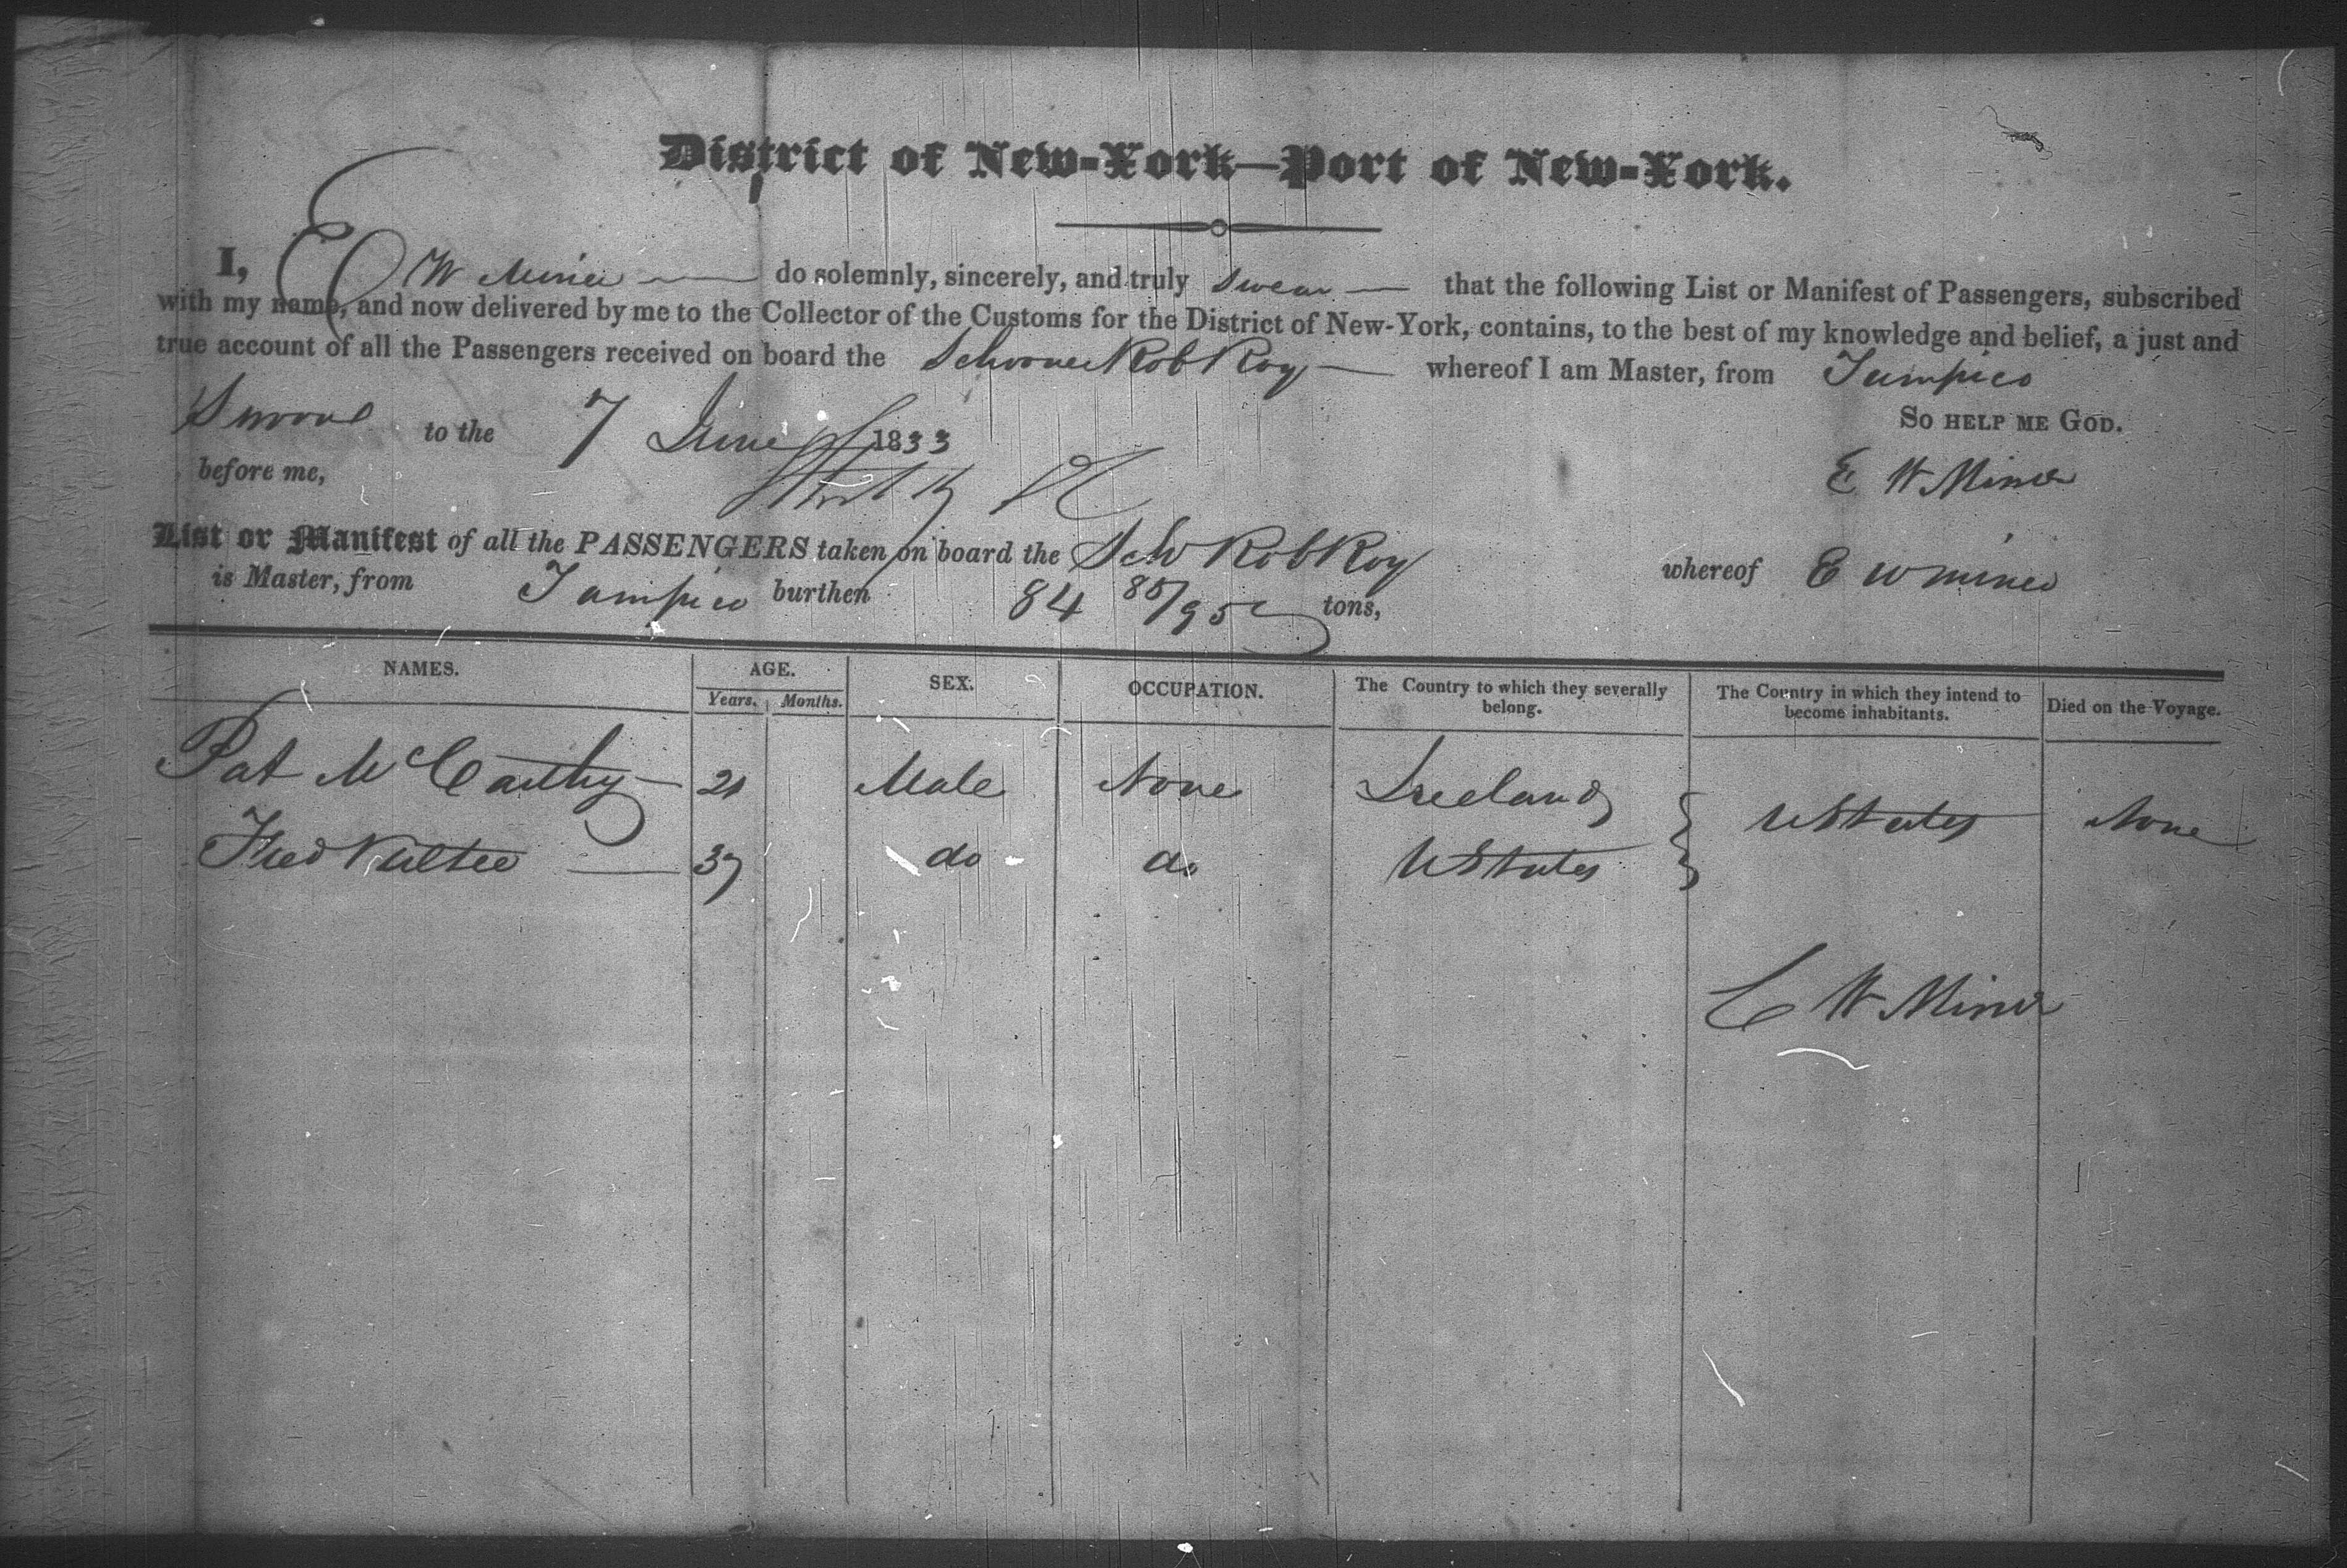 District of New-York—Port of New-York.
I, E W Miner do solemnly, sincerely, and truly swear that the following List or Manifest of Passengers, subscribed
with my name, and now delivered by me to the Collector of the Customs for the District of New-York, contains, to the best of my knowledge and belief, a just and
true account of all the Passengers received on board the Schooner Rob Roy whereof I am Master, from Tampico
to the 7 June 1833 So help me God.
before me, E W Miner
List or Manifest of all the PASSENGERS taken on board the Sch Rob Roy whereof E W Miner
is Master, from Tampico burthen 84 85/95 tons,
NAMES. AGE. SEX. OCCUPATION. The Country to which they severally belong. The Country in which they intend to become inhabitants. Died on the Voyage.
Years. Months.
Pat McCarthy 21 Male None Ireland UStates None
Fred 37 do do UStates
E W Miner